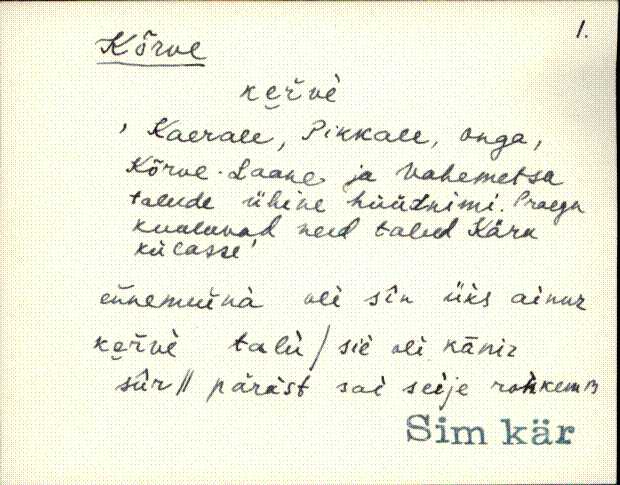 1.
Kõrve
ke̮r̆vè
' Kaerale, Pikkale, Onga,
Kõrve-Laane ja Vahemetsa
talude ühine hüüdnimi. Praegu
kuuluvad need talud Käru
külasse'
eñnemuinà oli sîn üks ainuz
ke̮r̆vè talù / sìe oli kãniz
sûr // pärast sai seije rohkem
Sim kär